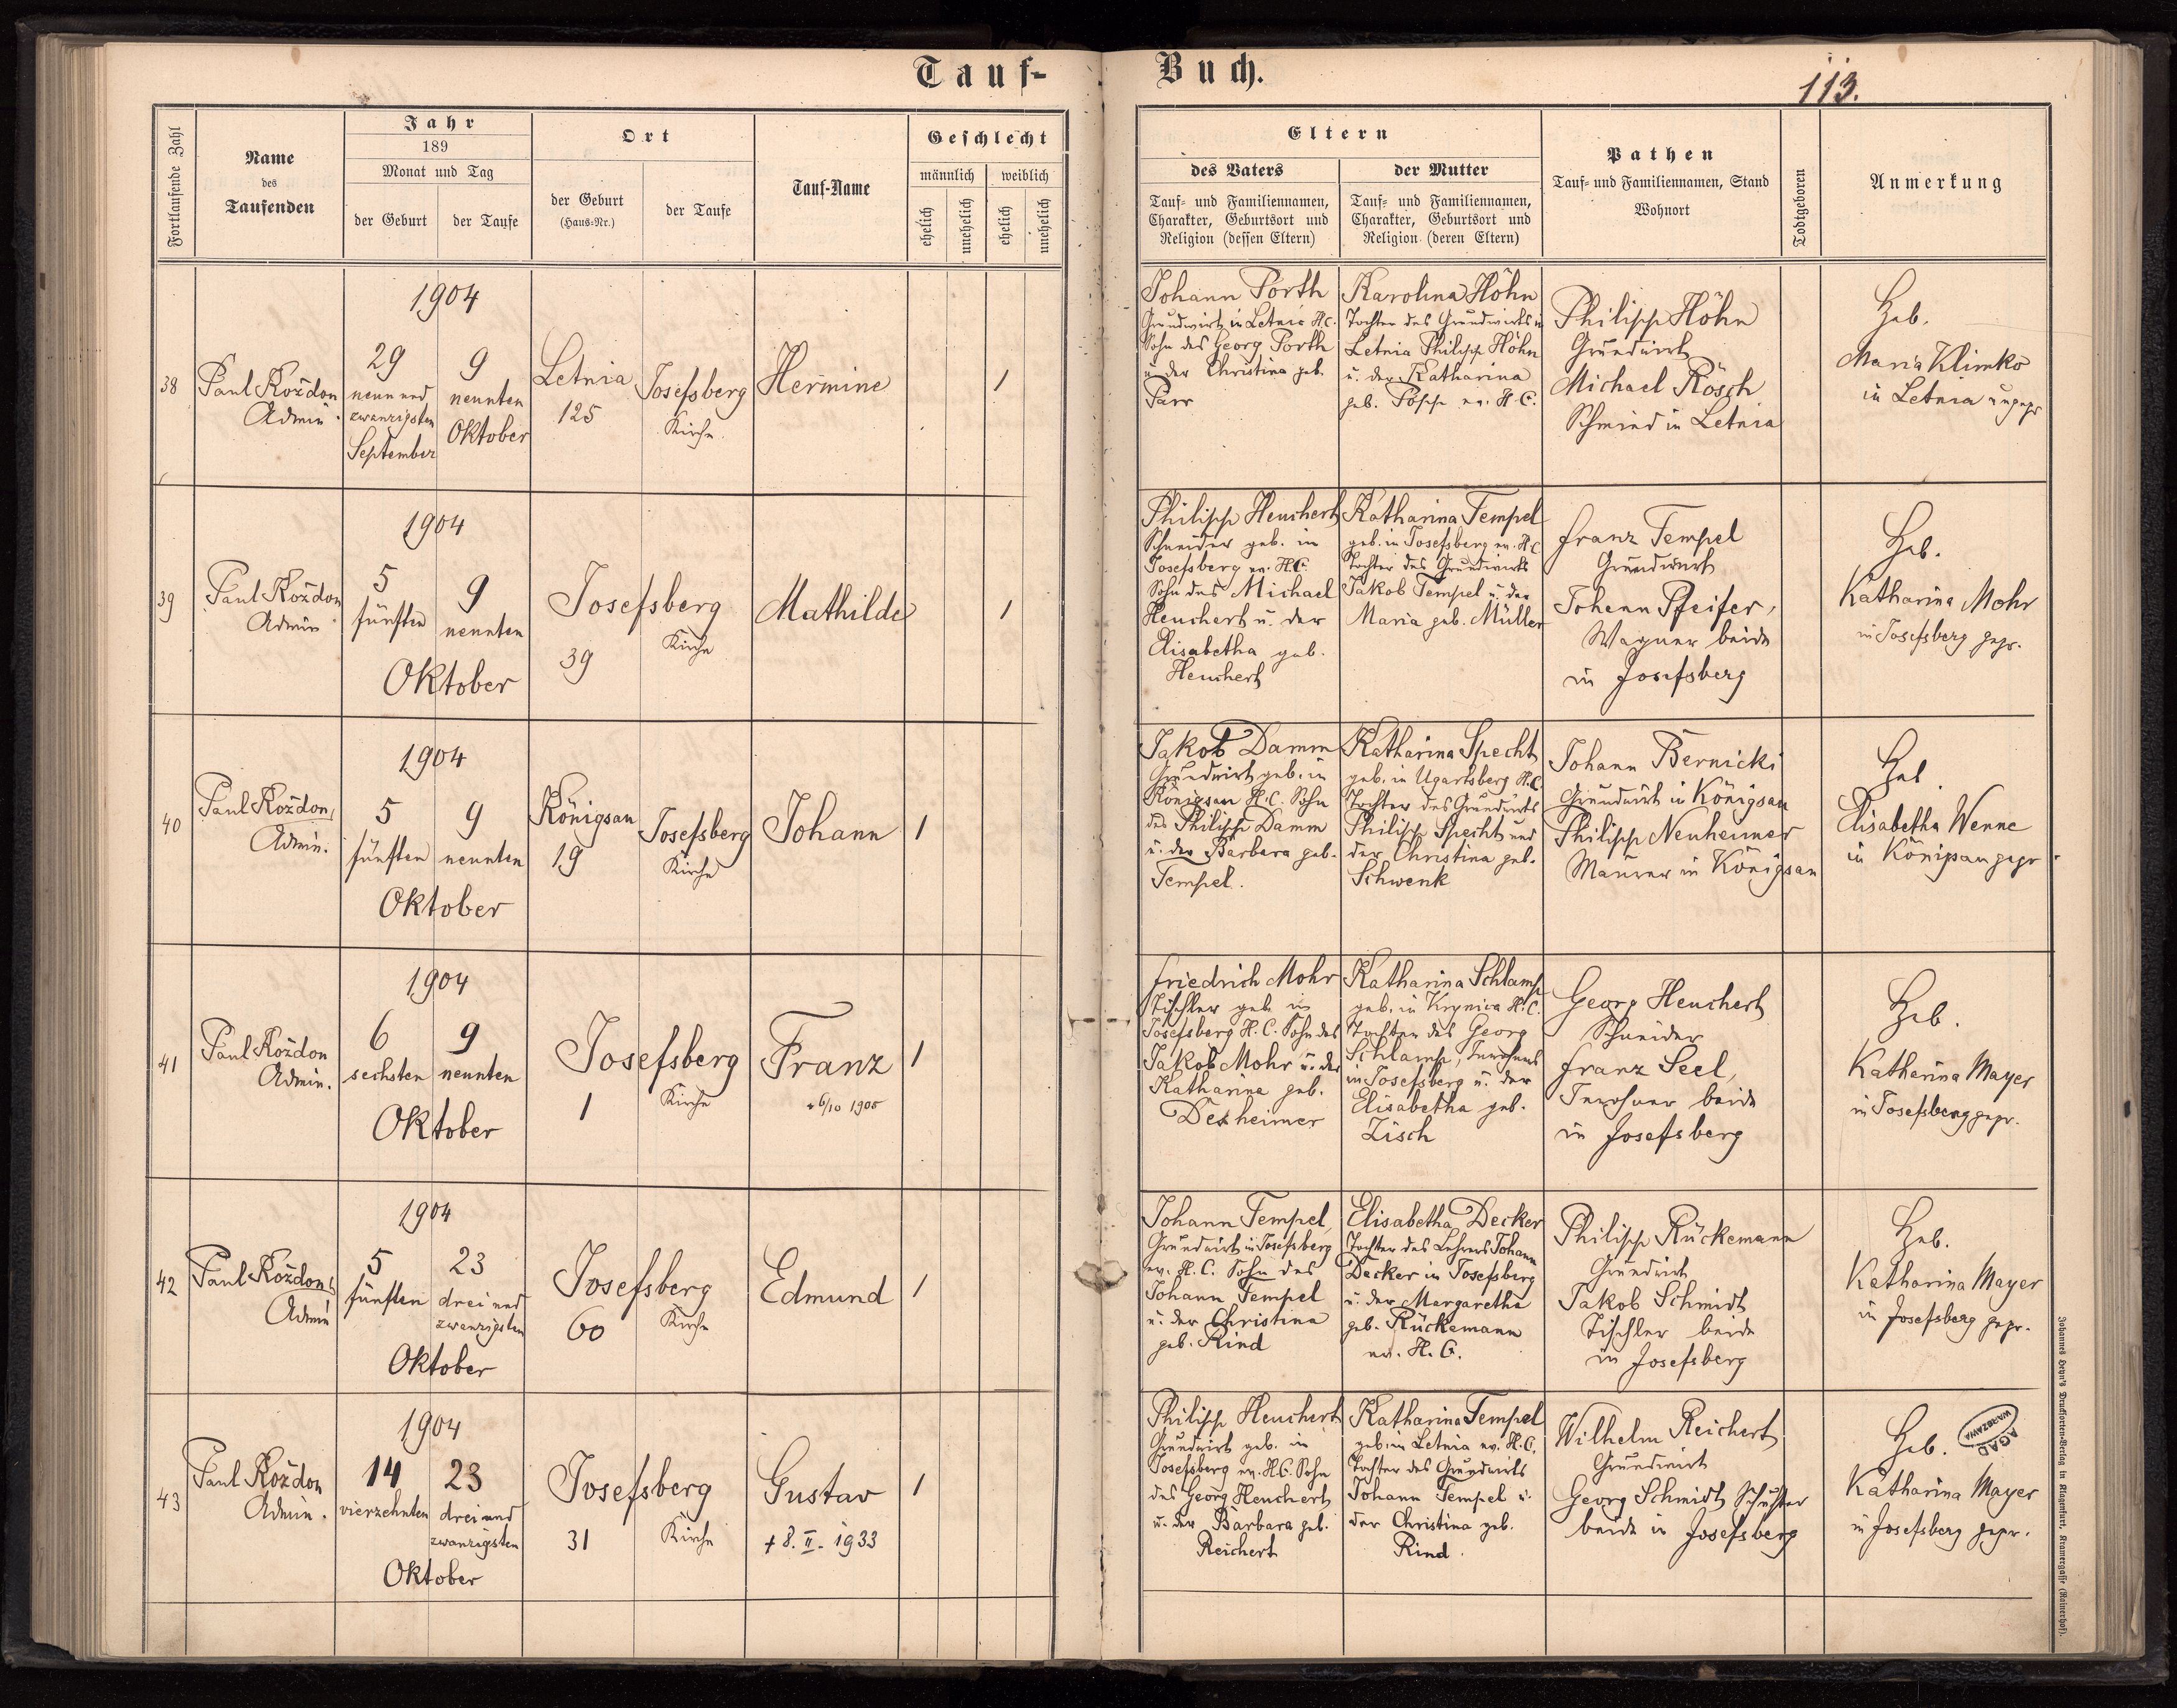 Tauf-
Buch.
113.
Fortlaufende Zahl
Name
des
Taufenden
Jahr
189
Monat und Tag
der Geburt
der Taufe
Ort
der Geburt
(Haus-Nr.)
der Taufe
Tauf-Name
Geschlecht
männlich
weiblich
ehelich
unehelich
ehelich
unehelich
Eltern
des Vaters
Tauf- und Familiennamen,
Charakter, Geburtsort und
Religion (dessen Eltern)
der Mutter
Tauf- und Familiennamen,
Charakter, Geburtsort und
Religion (deren Eltern)
Pathen
Tauf- und Familiennamen, Stand
Wohnort
Todtgeboren
Anmerkung
38
Paul Koždon
Admin.
1904
29
neun und
zwanzigsten
September
9
neunten
Oktober
Letnia
125
Josefsberg
Kirche
Hermine
1
Johann Porth
Grundwirt in Letnia H.C.
Sohn des Georg Porth
u. der Christina geb.
Parr
Karolina Höhn
Tochter des Grundwirts in
Letnia Philipp Höhn
u. der Katharina
geb. ev. H.C.
Philipp Höhn
Grundwirt
Michael Rösch
Schmied in Letnia
Heb.
Maria Klimko
in Letnia ungepr
39
Paul Koždon
Admin
1904
5
fünften
9
neunten
Oktober
Josefsberg
39
Kirche
Mathilde
1
Philipp Heuchert
Schneider geb. in
Josefsberg ev. H.C.
Sohn des Michael
Heuchert u. der
Elisabetha geb.
Heuchert
Katharina Tempel
geb. in Josefsberg ev. H.C.
Tochter des Grundwirts
Jakob Tempel u. der
Maria geb. Müller
Franz Tempel
Grundwirt
Johann Pfeifer,
Wagner beide
in Josefsberg
Heb.
Katharina Mohr
in Josefsberg gepr.
40
Paul Koždon,
Admin.
1904
5
fünften
9
neunten
Oktober
Königsau
19
Josefsberg
Kirche
Johann
1
Jakob Damm
Grundwirt geb. in
Königsau H.C. Sohn
des Philipp Damm
u. der Barbara geb.
Tempel.
Katharina Specht
geb. in Ugartsberg H.C.
Tochter des Grundwirts
Philipp Specht und
der Christina geb.
Schwenk
Johann Bernicki
Grundwirt in Königsau
Philipp Neuheimer
Maurer in Königsau
Heb
Elisabetha Wenne
in Königsau gepr.
41
Paul Koždon
Admin.
1904
6
sechsten
9
neunten
Oktober
Josefsberg
1
Kirche
Franz
+ 6/10 1905
1
Friedrich Mohr
Tischler geb. in
Josefsberg H.C. Sohn des
Jakob Mohr u. der
Katharina geb.
Dexheimer
Katharina Schlamp
geb. in Krynica H.C.
Tochter des Georg
Schlamp, Inwohners
in Josefsberg u. der
Elisabetha geb.
Zisch
Georg Heuchert
Schneider
Franz Seel,
Inwohner beide
in Josefsberg
Heb.
Katharina Mayer
in Josefsberg gepr.
42
Paul Koždon,
Admin
1904
5
fünften
23
drei und
zwanzigsten
Oktober
Josefsberg
60
Kirche
Edmund
1
Johann Tempel,
Grundwirt in Josefsberg
ev. H.C. Sohn des
Johann Tempel
u. der Christina
geb. Rind
Elisabetha Decker
Tochter des Lehrers Johann
Decker in Josefsberg
u. der Margaretha
geb. Rückemann
ev. H.C.
Philipp Rückemann
Grundwirt
Jakob Schmidt
Tischler beide
in Josefsberg
Heb.
Katharina Mayer
in Josefsberg gepr.
43
Paul Koždon
Admin.
1904
14
vierzehnten
23
drei und
zwanzigsten
Oktober
Josefsberg
31
Kirche
Gustav
+ 8. II. 1933
1
Philipp Heuchert
Grundwirt geb. in
Josefsberg ev. H.C. Sohn
des Georg Heuchert
u. der Barbara geb.
Reichert
Katharina Tempel
geb. in Letnia ev. H.C.
Tochter des Grundwirts
Johann Tempel u.
der Christina geb.
Rind.
Wilhelm Reichert
Grundwirt
Georg Schmidt Schuster
beide in Josefsberg
Heb.
Katharina Mayer
in Josefsberg gepr.
AGAD
WARSZAWA
Johannes Heyn's Drucksorten-Verlag in Klagenfurt, Kramergasse (Rainerhof).